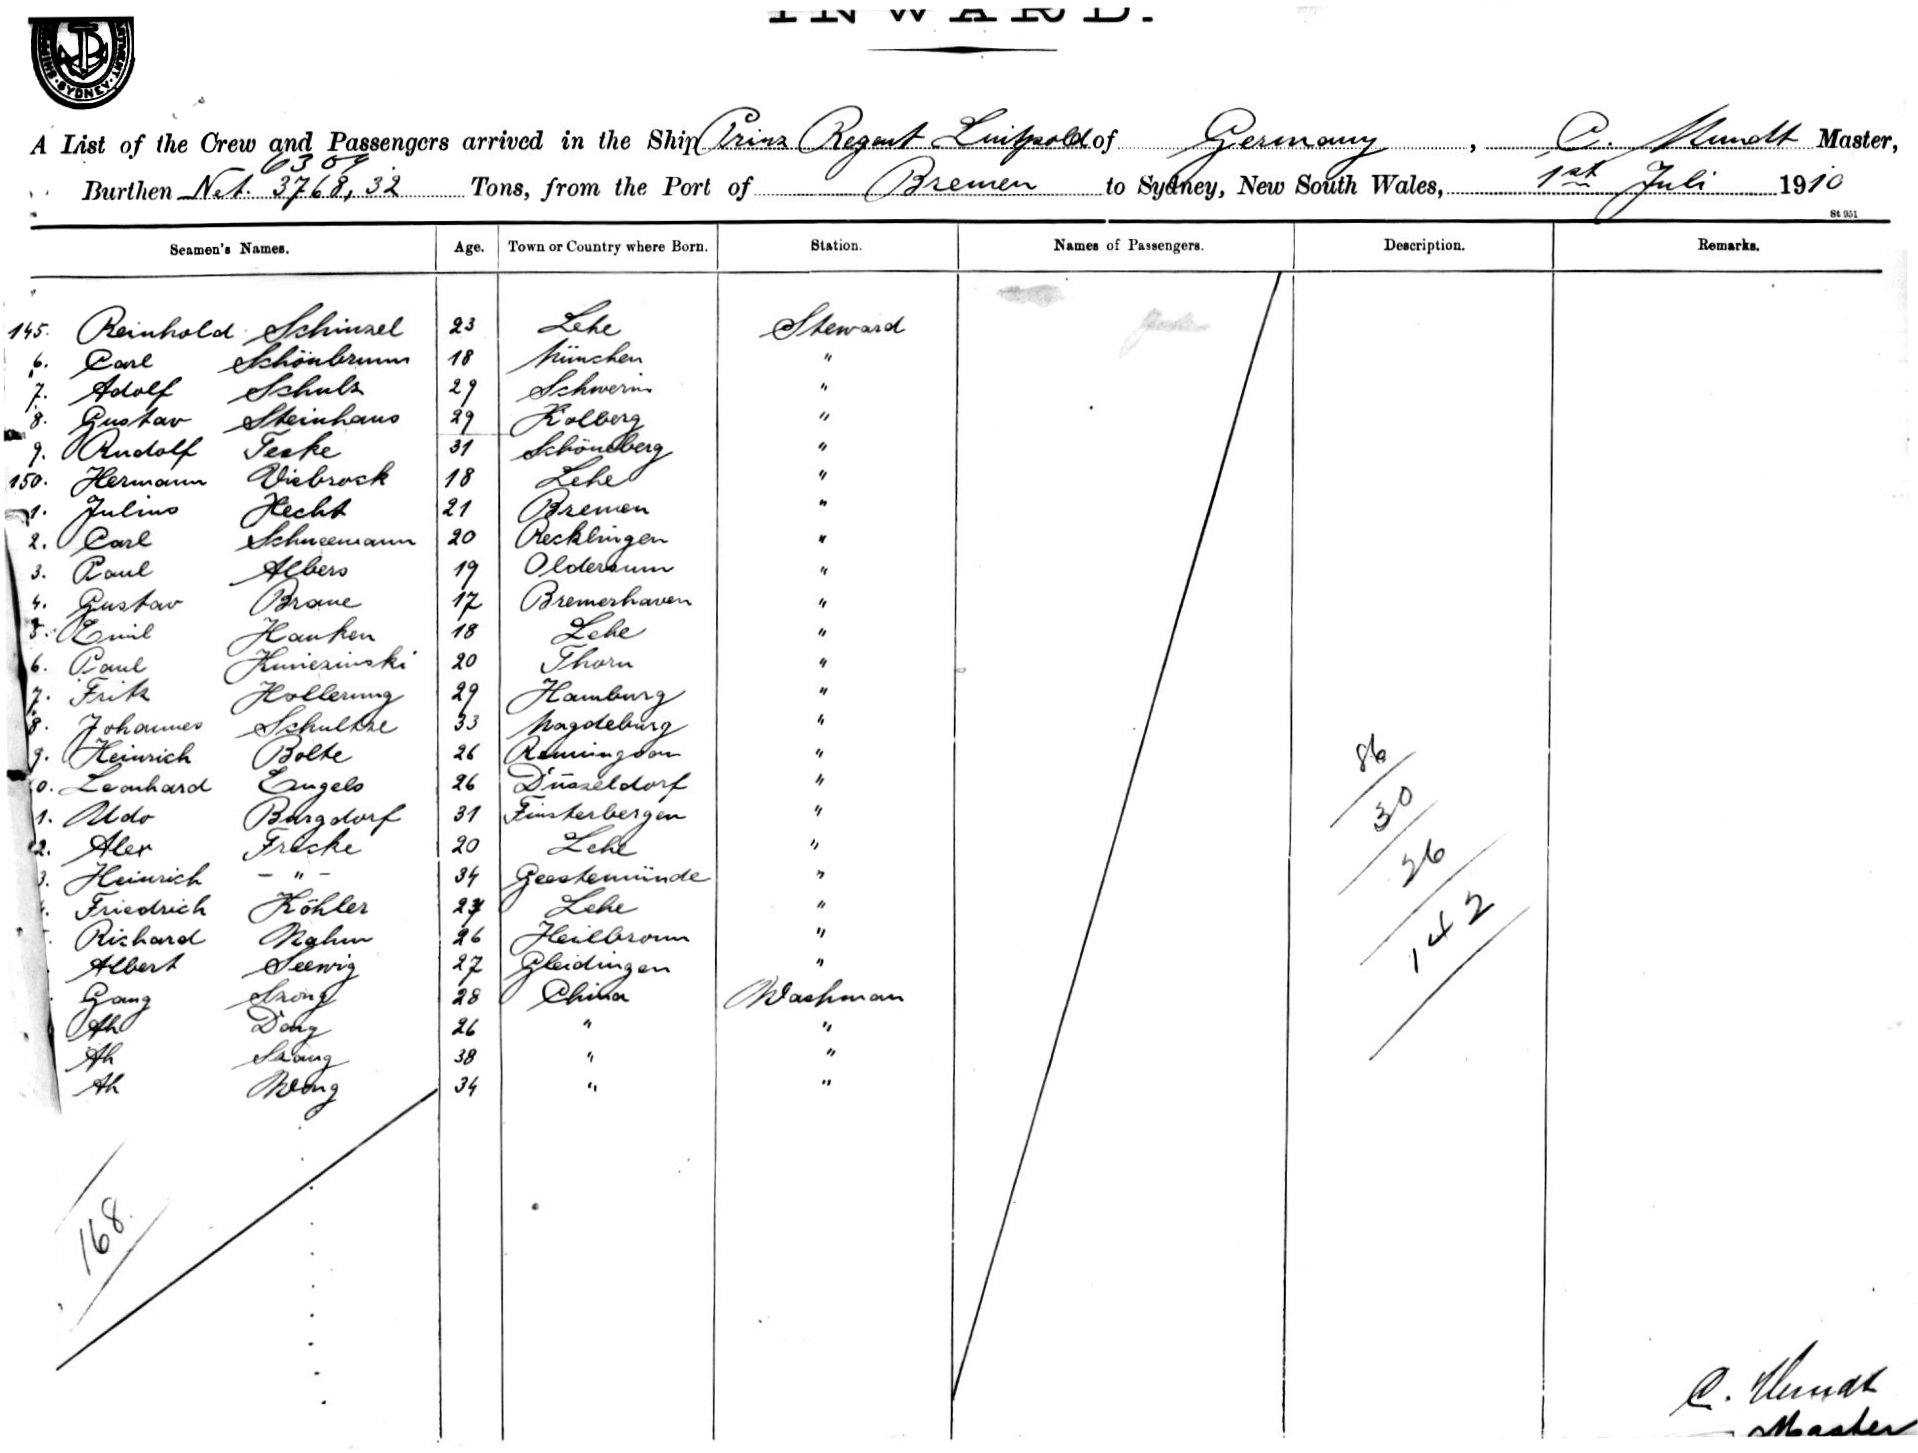 INWARD.
SYDNEY
A List of the Crew and Passengers arrived in the Ship Prinz Regent Luitpold of Germany, C. Mundt Master,
6304
Burthen Net. 3768,32 Tons, from the Port of Bremen to Sydney, New South Wales, 1st Juli 1910
St 951
Seamen's Names. Age. Town or Country where Born. Station. Names of Passengers. Description. Remarks.
145. Reinhold Schinzel 23 Lehe Steward
6. Carl Schönbrunn 18 München "
7. Adolf Schulz 29 Schwerin "
8. Gustav Steinhaus 29 Kolberg "
9. Rudolf Teske 31 Schöneberg "
150. Hermann Viebrock 18 Lehe "
1. Julius Hecht 21 Bremen "
2. Carl Schneemann 20 Recklingen "
3. Paul Albers 19 Oldersum "
4. Gustav Braue 17 Bremerhaven "
5. Emil Hanken 18 Lehe "
6. Paul 20 Thorn "
7. Fritz Hollerung 29 Hamburg "
8. Johannes Schultze 33 Magdeburg "
9. Heinrich Bolte 26 "
0. Leonhard Engels 26 Düsseldorf "
1. Udo Burgdorf 31 Finsterbergen "
2. Alex Fricke 20 Lehe "
3. Heinrich – " – 34 Geestemünde "
Friedrich Köhler 27 Lehe "
Richard Nahm 26 Heilbronn "
Albert Seewig 27 Gleidingen "
Gang Szong 28 China Washman
Ah Dong 26 " "
Ah Szang 38 " "
Ah Wong 34 " "
86
30
26
142
168
C. Mundt
Master